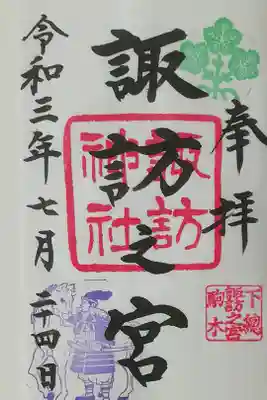 奉拝
諏訪之宮
諏訪
神社
下總
諏訪之宮
駒木
令和三年七月二十四日